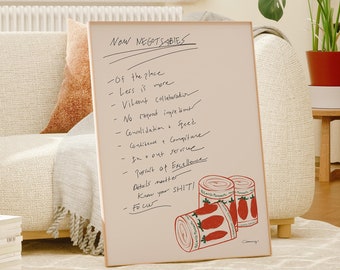 NON NEGOTIABLES
- Of the place
- Less is more
- Vibrant collaboration
- No repeat ingredients
- Consolidation + Speed
- Confidence + Competence
- In + out service
- Pursuit of Excellence
Details matter
Know your SHIT!
- FOCUS